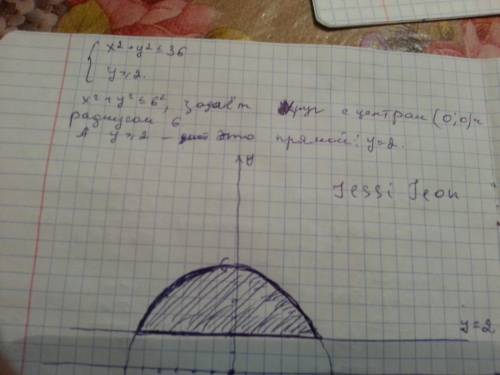 x² + y² ≤ 36
y ≥ 2.
x² + y² ≤ 6², задаёт круг с центром (0;0) и
радиусом 6
А y ≥ 2 – это прямой: y = 2.
y
Jessi Jeon
6
y = 2